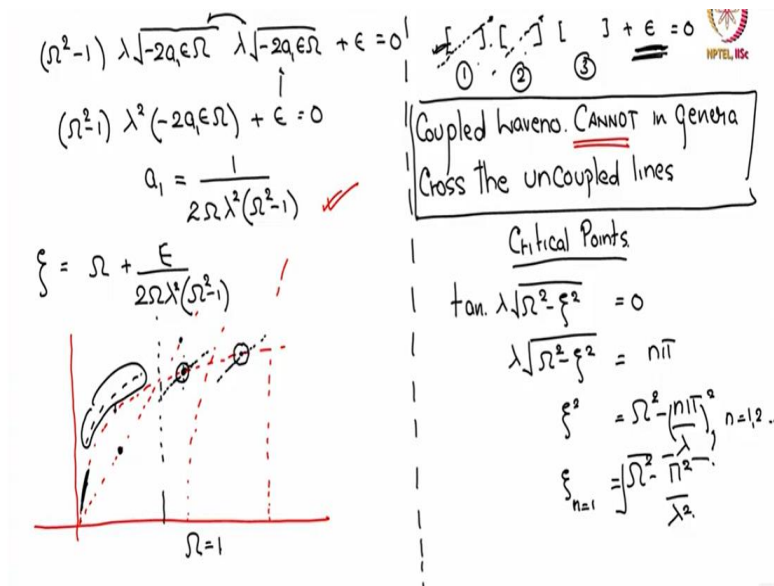 (Ω²-1) λ√-2a₁εΩ λ√-2a₁εΩ + ε = 0
(Ω²-1) λ²(-2a₁εΩ) + ε = 0
a₁ = 1 / 2Ωλ²(Ω²-1)
ξ = Ω + ε / 2Ωλ²(Ω²-1)
Ω=1
[ ] . [ ] [ ] + ε = 0
① ② ③
NPTEL, IISc
Coupled waveno. CANNOT in genera
Cross the uncoupled lines
Critical Points.
tan. λ√Ω²-ξ² = 0
λ√Ω²-ξ² = nπ
ξ² = Ω² - (nπ/λ)², n=1,2..
ξₙ₌₁ = √Ω² - π²/λ².